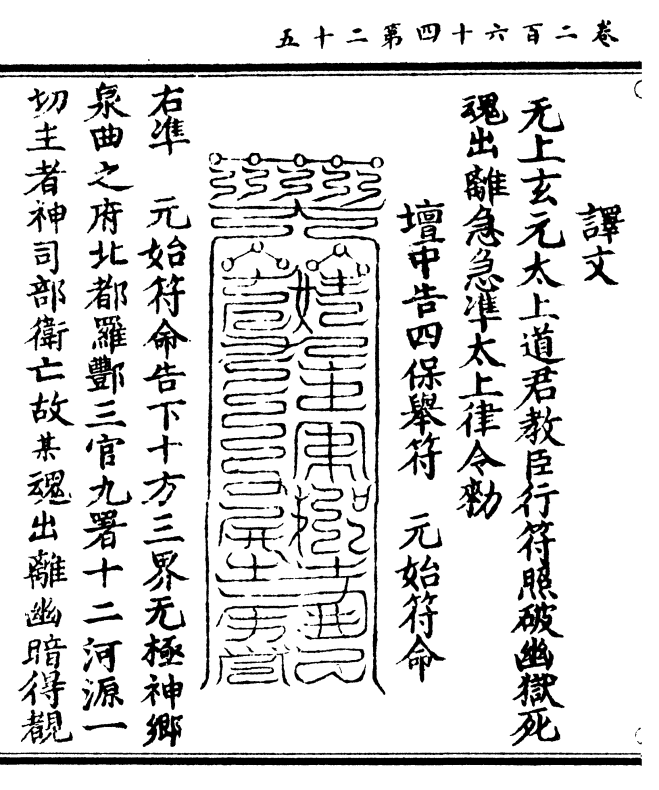 卷二百六十四第二十五
譯文
无上玄元太上道君教臣行符照破幽獄死
魂出離急急準太上律令勑
壇中告四保舉符　元始符命
右準　元始符命告下十方三界无極神鄉
泉曲之府北都羅酆三官九署十二河源一
切主者神司部衛亡故某魂出離幽暗得覩